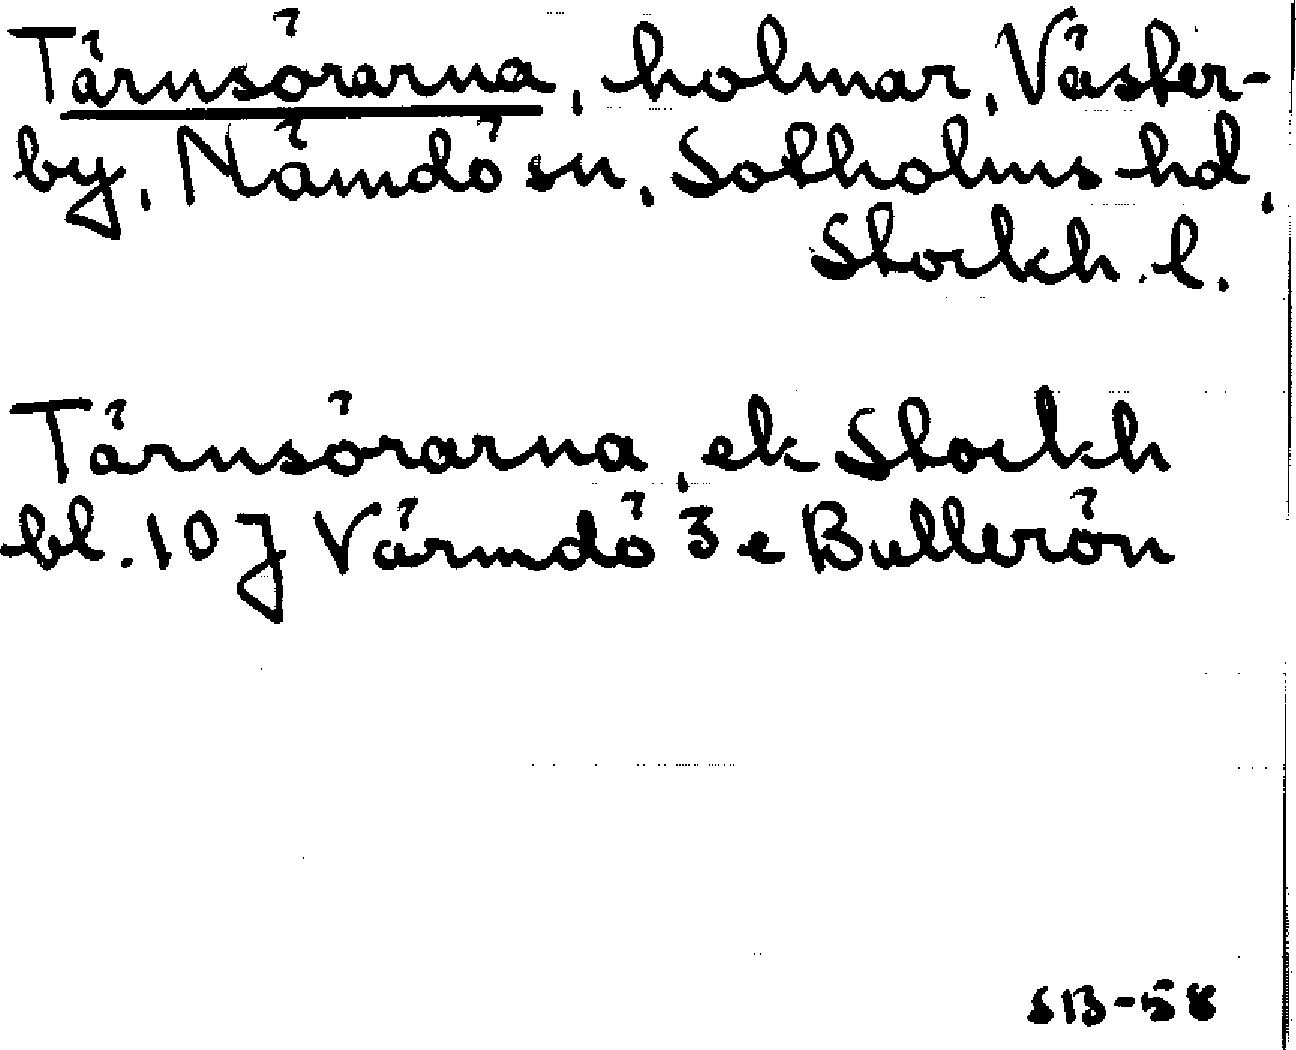 Tärnsörarna, holmar, Väster-
by, Nämdö sn, Sotholms hd,
Stockh. l.
Tärnsörarna, ek Stockh
bl. 10J Värmdö 3e Bullerön
SB-58